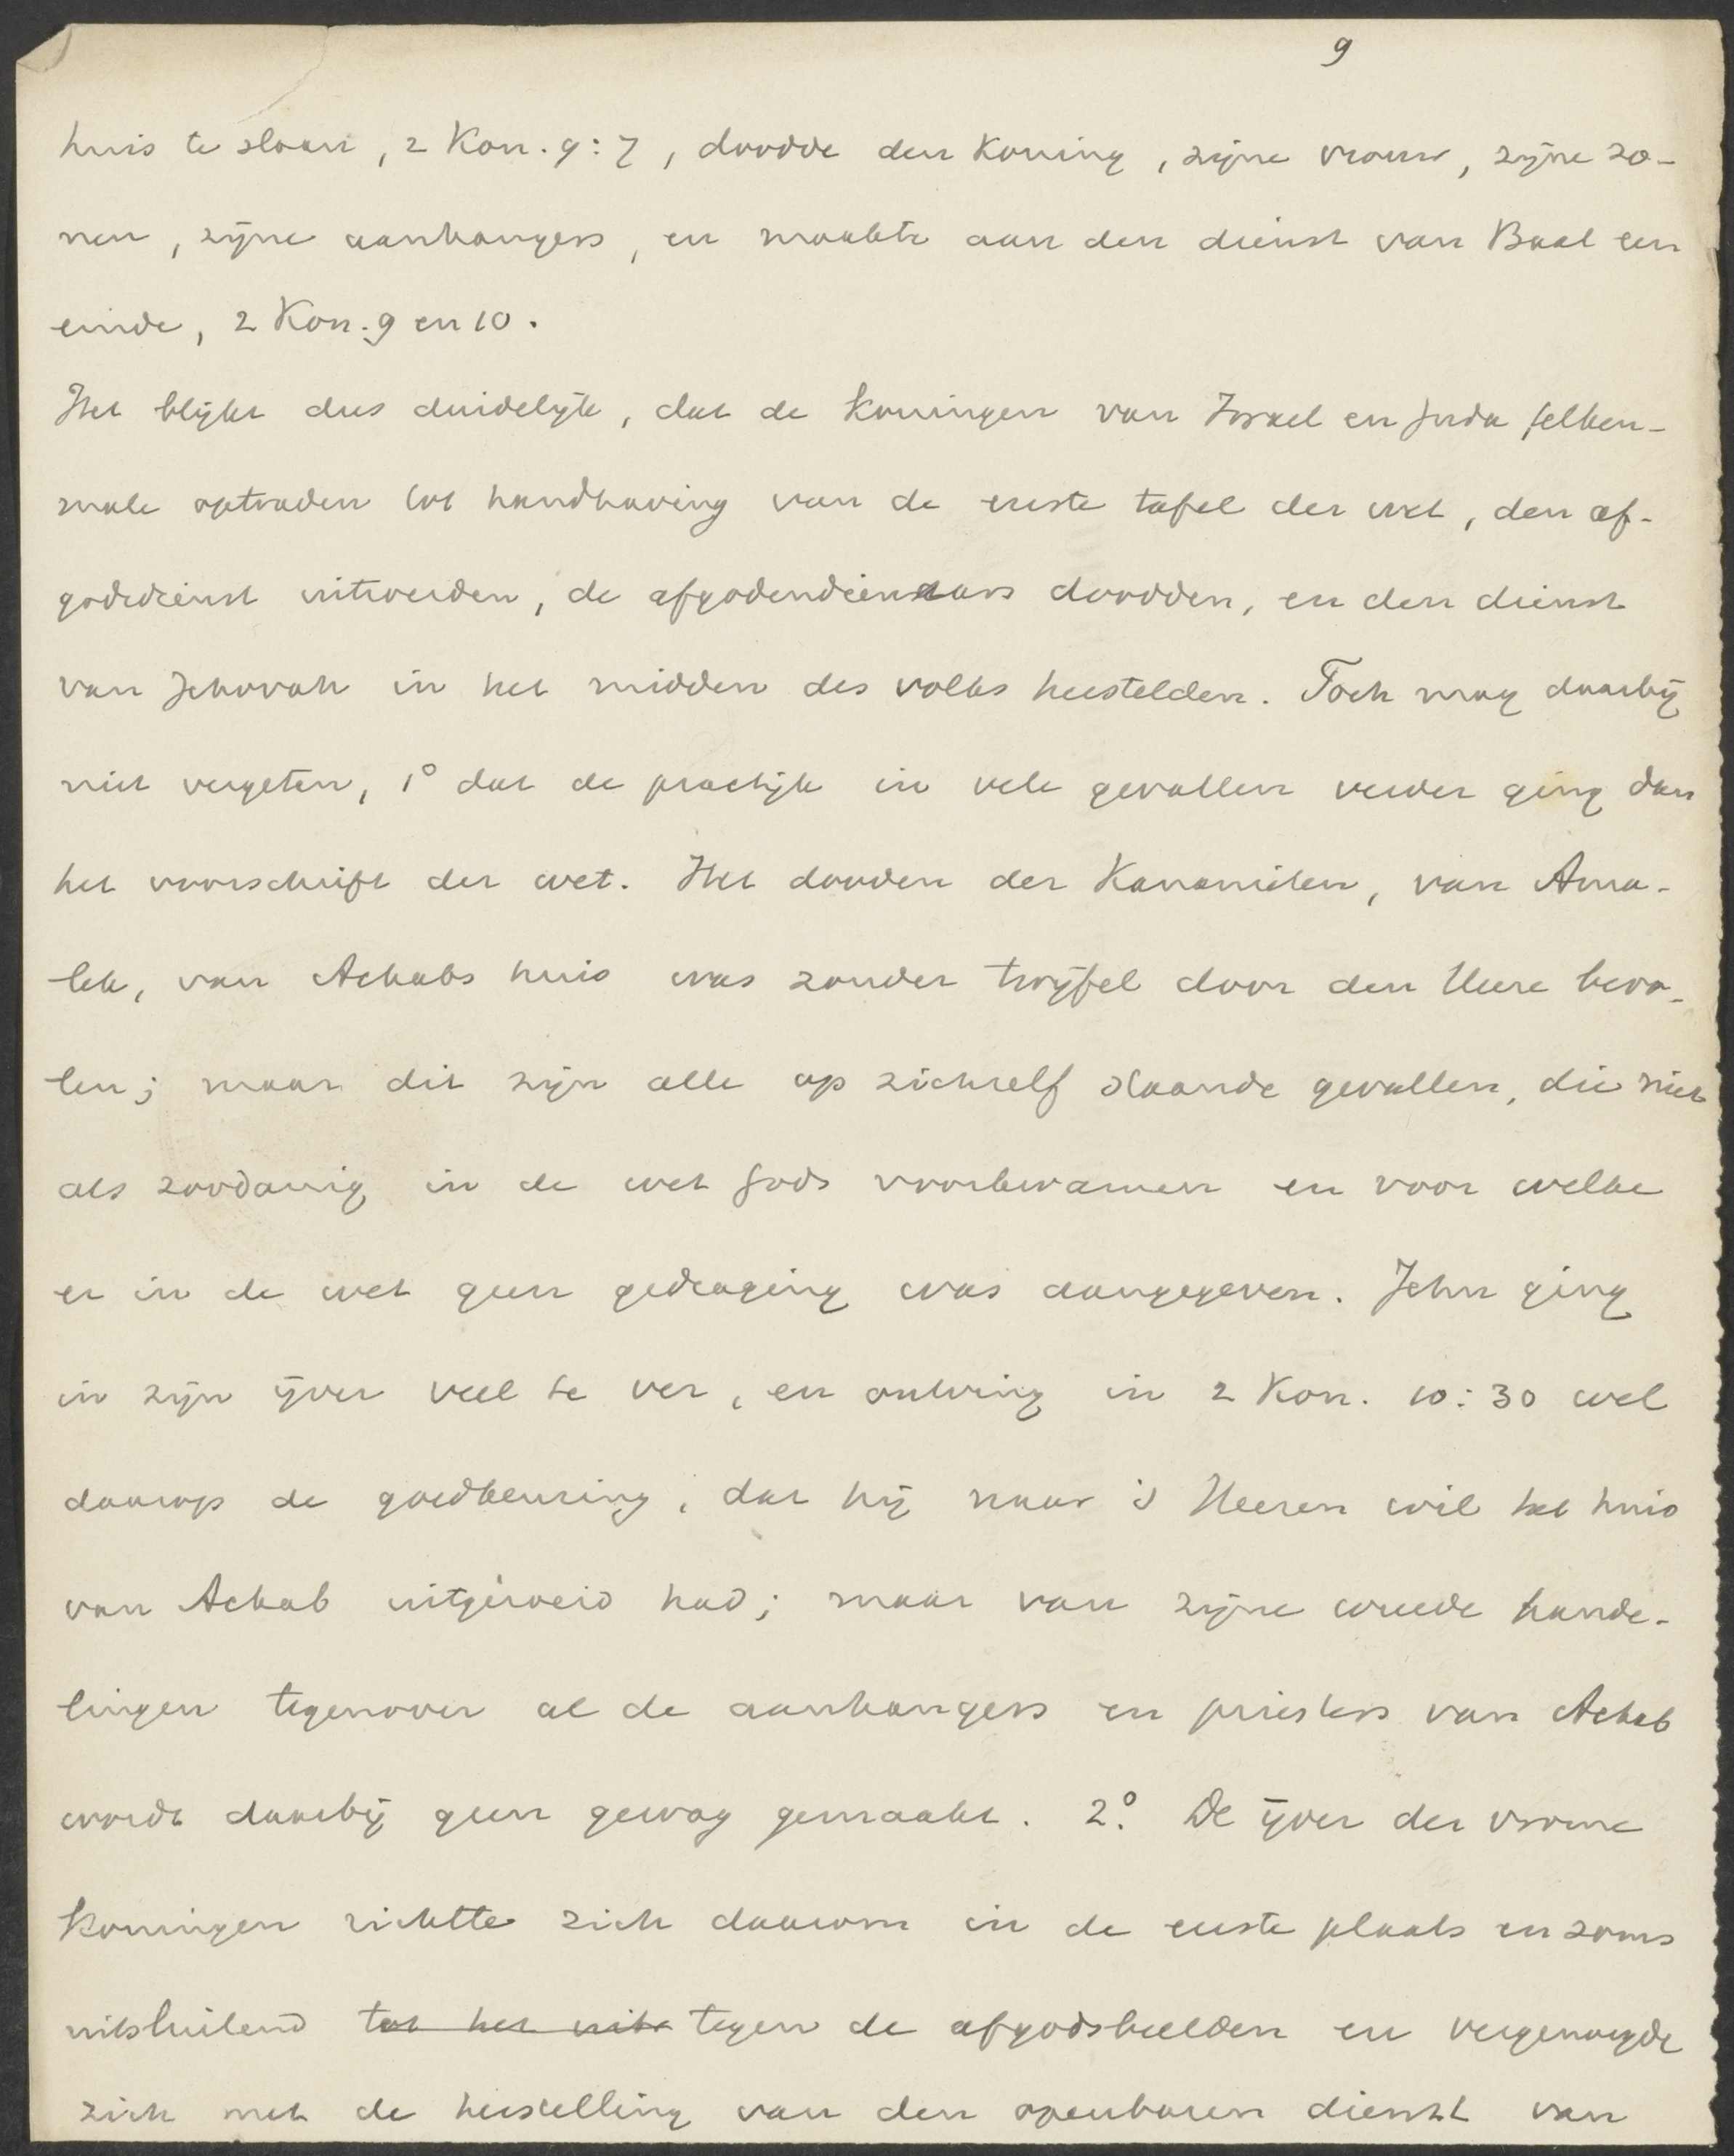 9
huis te slaan, 2 Kon. 9:7, doodde den Koning, zijne vrouw, zijne zo-
nen, zijne aanhangers, en maakte aan den dienst van Baal een
einde, 2 Kon. 9 en 10.
Het blijkt dus duidelijk, dat de Koningen van Israel en Juda telken-
male optraden tot handhaving van de eerste tafel der wet, den af-
godsdienst uitroeiden, de afgodendienaars doodden, en den dienst
van Jehovah in het midden des volks herstelden. Toch mag daarbij
niet vergeten, 1° dat de practijk in vele gevallen verder ging dan
het voorschrift der wet. Het dooden der Kanaanieten, van Ama-
lek, van Achabs huis was zonder twijfel door den Heere bevo-
len; maar dit zijn alle op zichzelf staande gevallen, die niet
als zoodanig in de wet Gods voorkwamen en voor welke
er in de wet geen gedraging was aangegeven. Jehu ging
in zijn ijver veel te ver, en ontving in 2 Kon. 10:30 wel
daarop de goedkeuring, dat hij naar 's Heeren wil het huis
van Achab uitgeroeid had; maar van zijne wreede hande-
lingen tegenover al de aanhangers en priesters van Achab
wordt daarbij geen gewag gemaakt. 2° De ijver der vrome
Koningen richtte zich daarom in de eerste plaats en soms
uitsluitend tot het uit tegen de afgodsbeelden en vergenoegde
zich met de herstelling van den openbaren dienst van